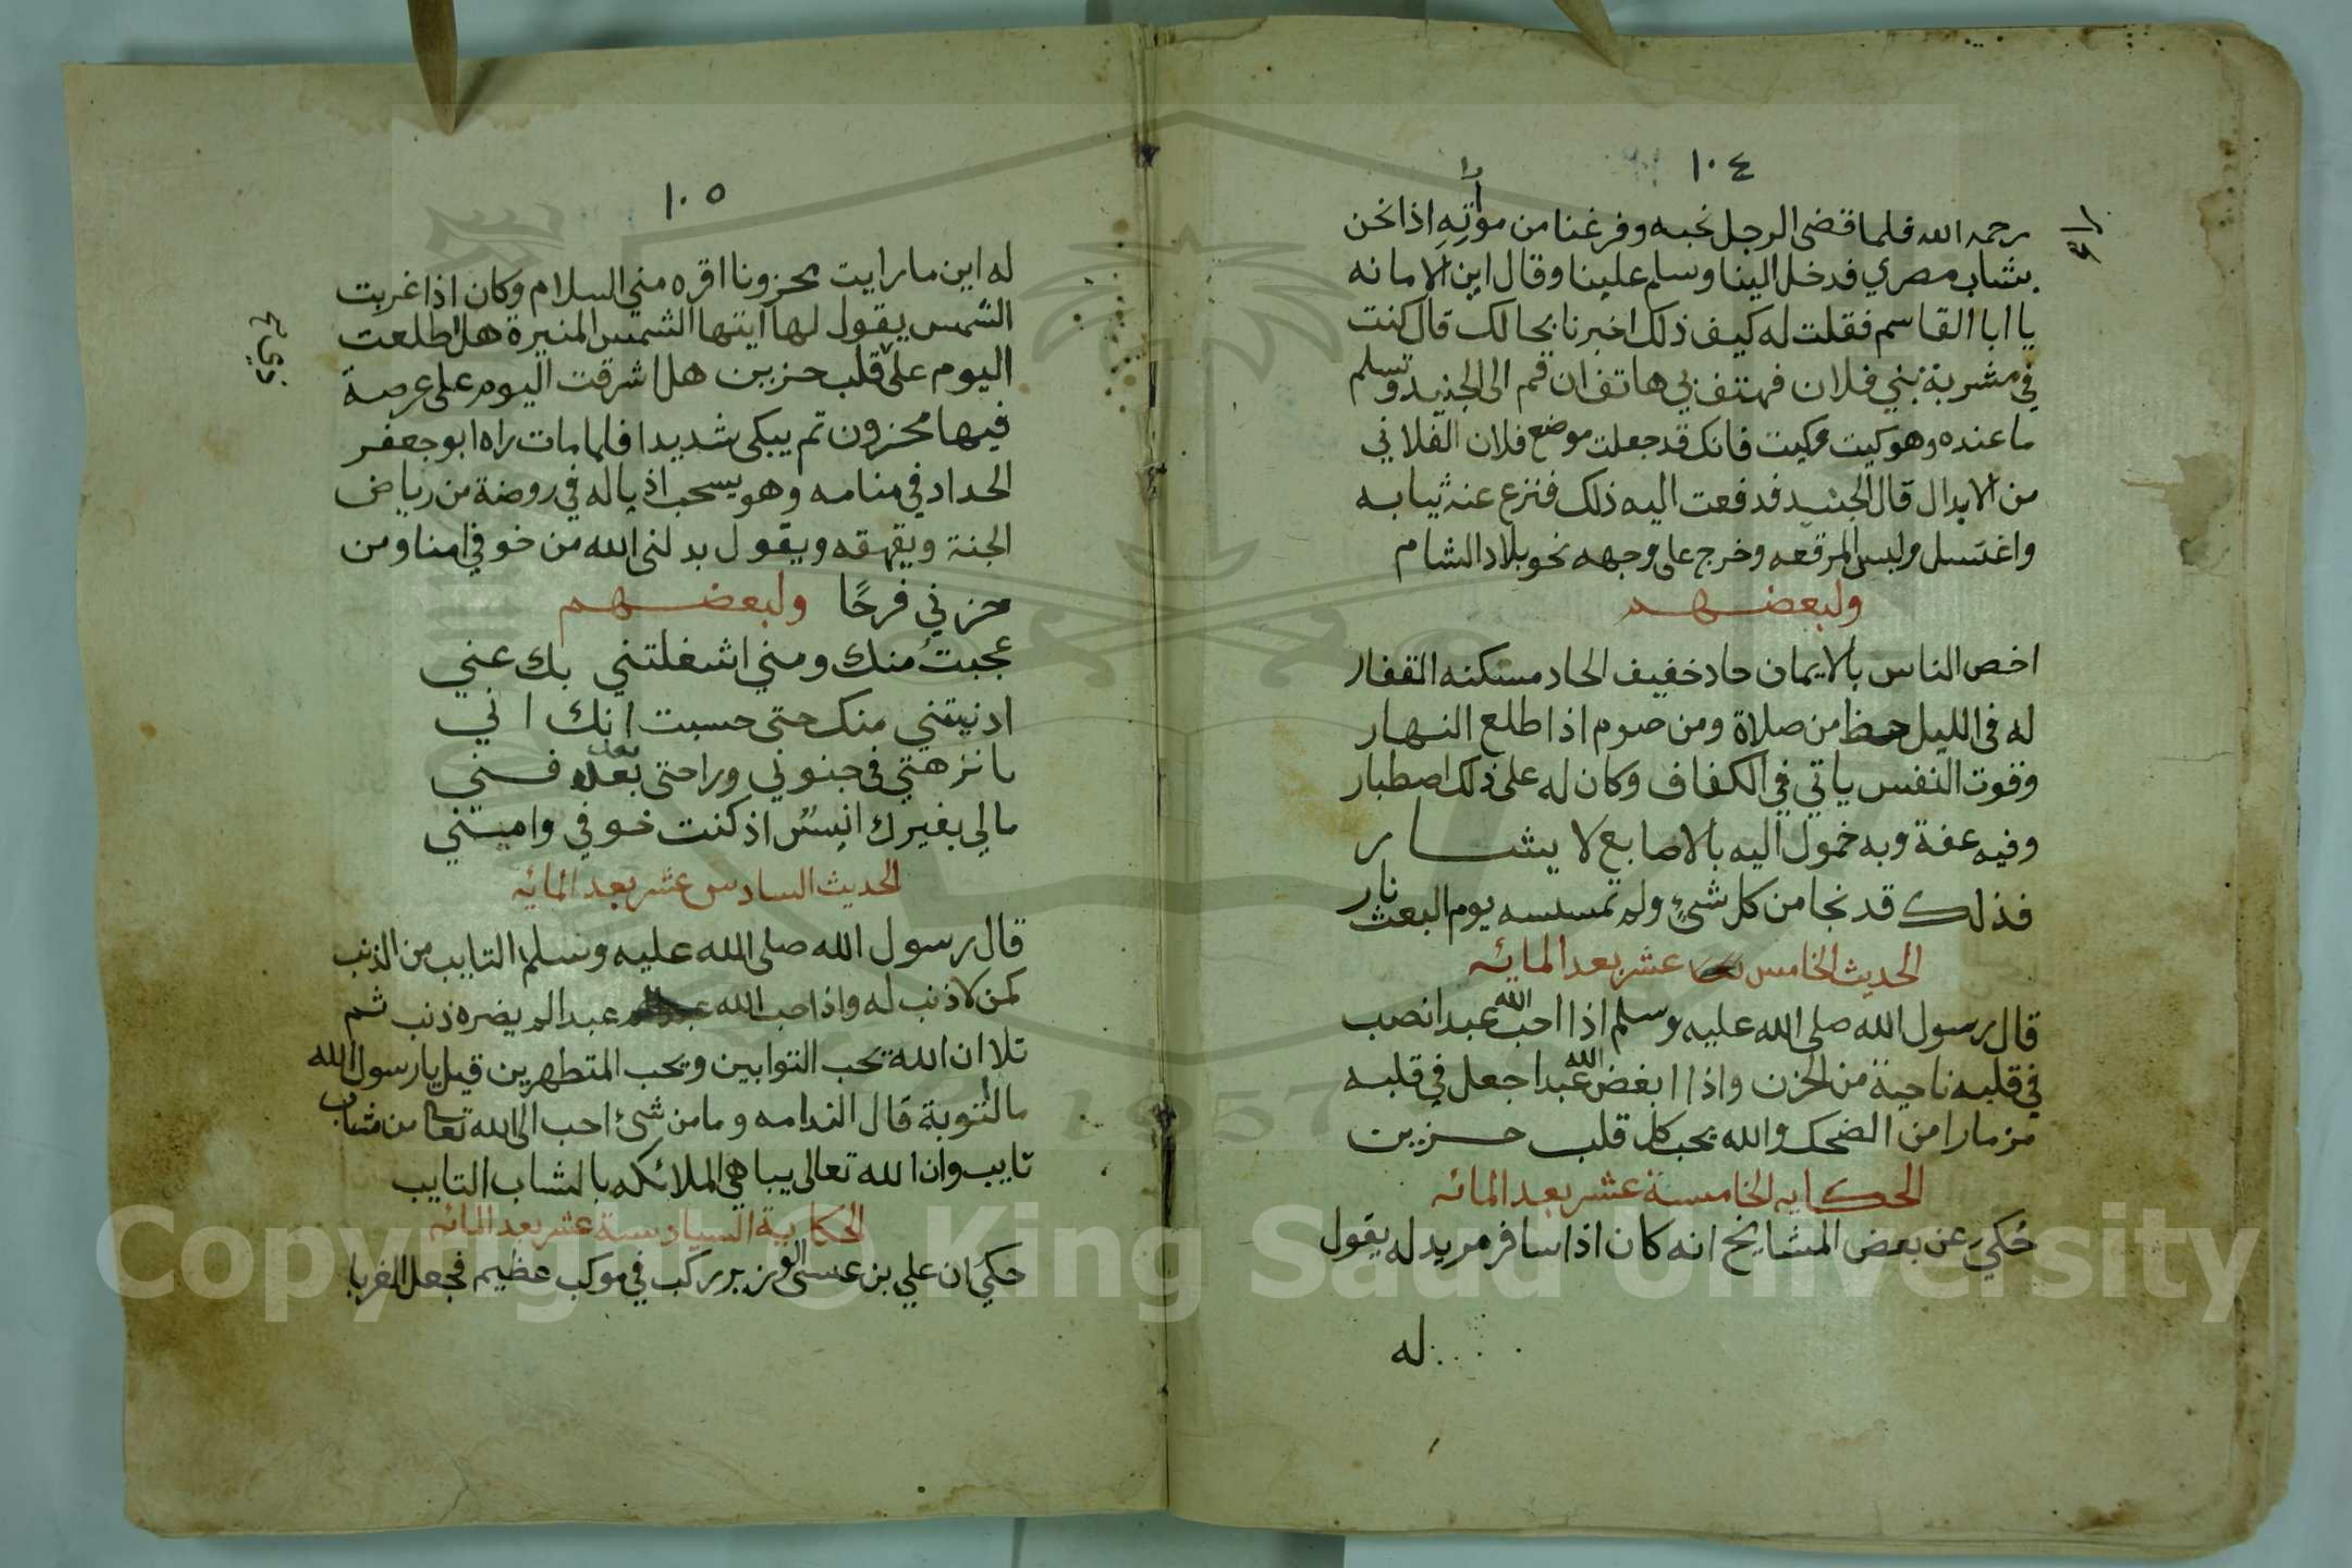 ١٠٤
رحمه الله فلما قضى الرجل نحبه وفرغنا من مواراته اذا نحن
بشاب مصري فدخل الينا وسلم علينا وقال اين الامانه
يا ابا القاسم فقلت له كيف ذلك اخبرنا بحالك قال كنت
في مشربة بني فلان فهتف بي هاتف ان قم الى الجنيد وتسلم
ما عنده وهو كيت وكيت فانك قد جعلت موضع فلان الفلاني
من الابدال قال الجنيد فدفعت اليه ذلك فنزع عنه ثيابه
واغتسل ولبس المرقعه وخرج على وجهه نحو بلاد الشام
ولبعضهم
اخص الناس بالايمان حاد خفيف الحاد مسكنه القفار
له في الليل حظ من صلاة ومن صوم اذا طلع النهار
وقوت النفس ياتي في الكفاف وكان له على ذلك اصطبار
وفيه عفة وبه خمول اليه بالاصابع لا يشار
فذلك قد نجا من كل شيء ولم تمسسه يوم البعث نار
الحديث الخامس عشر بعد المائه
قال رسول الله صلى الله عليه وسلم اذا احب الله عبدا نصب
في قلبه ناحية من الحزن واذا ابغض الله عبدا جعل في قلبه
مزمارا من الضحك والله يحب كل قلب حزين
الحكايه الخامسة عشر بعد المائه
حكي عن بعض المشايخ انه كان اذا سافر مريد له يقول
له
١٠٥
له اين ما رايت محزونا اقره مني السلام وكان اذا غربت
الشمس يقول لها ايتها الشمس المنيرة هل اطلعت
اليوم على قلب حزين هل اشرقت اليوم على عرصة
فيها محزون ثم يبكى شديدا فلما مات راه ابو جعفر
الحداد في منامه وهو يسحب اذياله في روضة من رياض
الجنة ويقهقه ويقول بدلني الله من خوفي امنا ومن
حزني فرحًا ولبعضهم
عجبتُ منك ومني اشغلتني بك عني
ادنيتني منك حتى حسبت انك اني
يا نزهتي في جنوني وراحتى بعد فني
مالي بغيرك انيسٌ اذ كنت خوفي واميتني
الحديث السادس عشر بعد المائه
قال رسول الله صلى الله عليه وسلم التايب من الذنب
كمن لا ذنب له واذا احب الله عبدا لم يضره ذنب ثم
تلا ان الله يحب التوابين ويحب المتطهرين قيل يا رسول الله
ما التوبة قال الندامه وما من شيء احب الى الله تعالى من شاب
تايب وان الله تعالى يباهي الملائكه بالشاب التايب
الحكاية السادسة عشر بعد المائه
حكي ان علي بن عيسى الوزير ركب في موكب عظيم فجعل الغربا
Copyright © King Saud University
1957